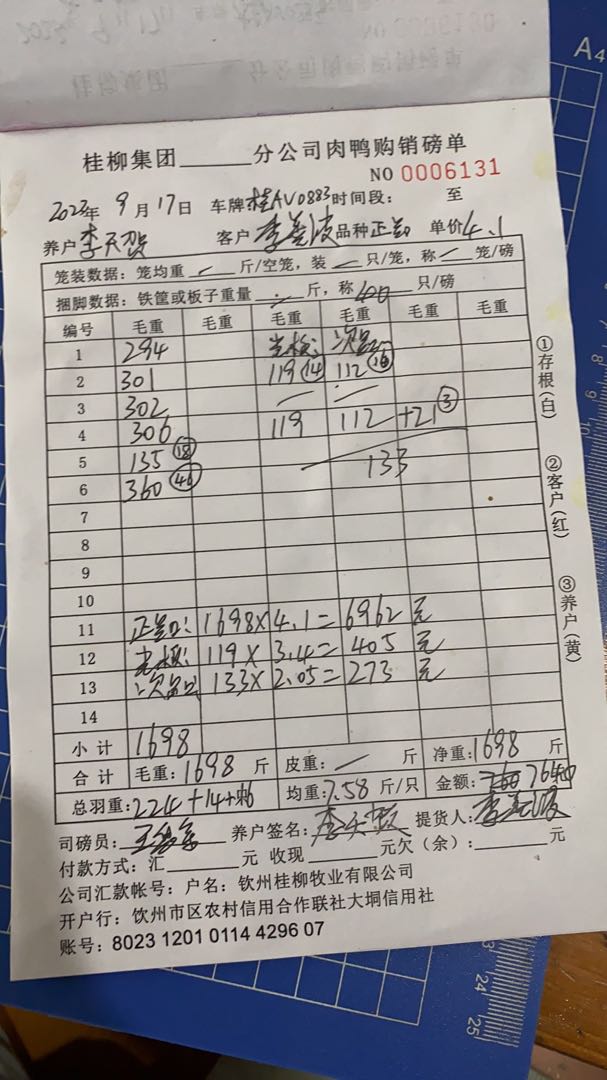 桂柳集团______分公司肉鸭购销磅单
NO 0006131
2023年 9月17日 车牌桂AV0883时间段： 至
养户李天贺 客户 品种正品 单价4.1
笼装数据：笼均重 — 斤/空笼，装 — 只/笼，称 — 笼/磅
捆脚数据：铁筐或板子重量 斤，称 400 只/磅
编号 毛重 毛重 毛重 毛重 毛重 毛重
1 294 次品
2 301 119 (14) 112 (16)
3 302
4 306 119 112 +21 (3)
5 135 (18) 133
6 360 (46)
7
8
9
10
11 正品: 1698×4.1=6962元
12 119×3.4=405元
13 次品 133×2.05=273元
14
小计 1698
合计 毛重：1698斤 皮重：— 斤 净重：1698 斤
总羽重：224+14+16 均重：7.58斤/只 金额：7640
司磅员： 养户签名： 提货人：
付款方式：汇______元 收现______元欠（余）：______元
公司汇款帐号：户名：钦州桂柳牧业有限公司
开户行：钦州市区农村信用合作联社大垌信用社
账号：8023 1201 0114 4296 07
①存根（白）
②客户（红）
③养户（黄）
A4
10
23
24
25